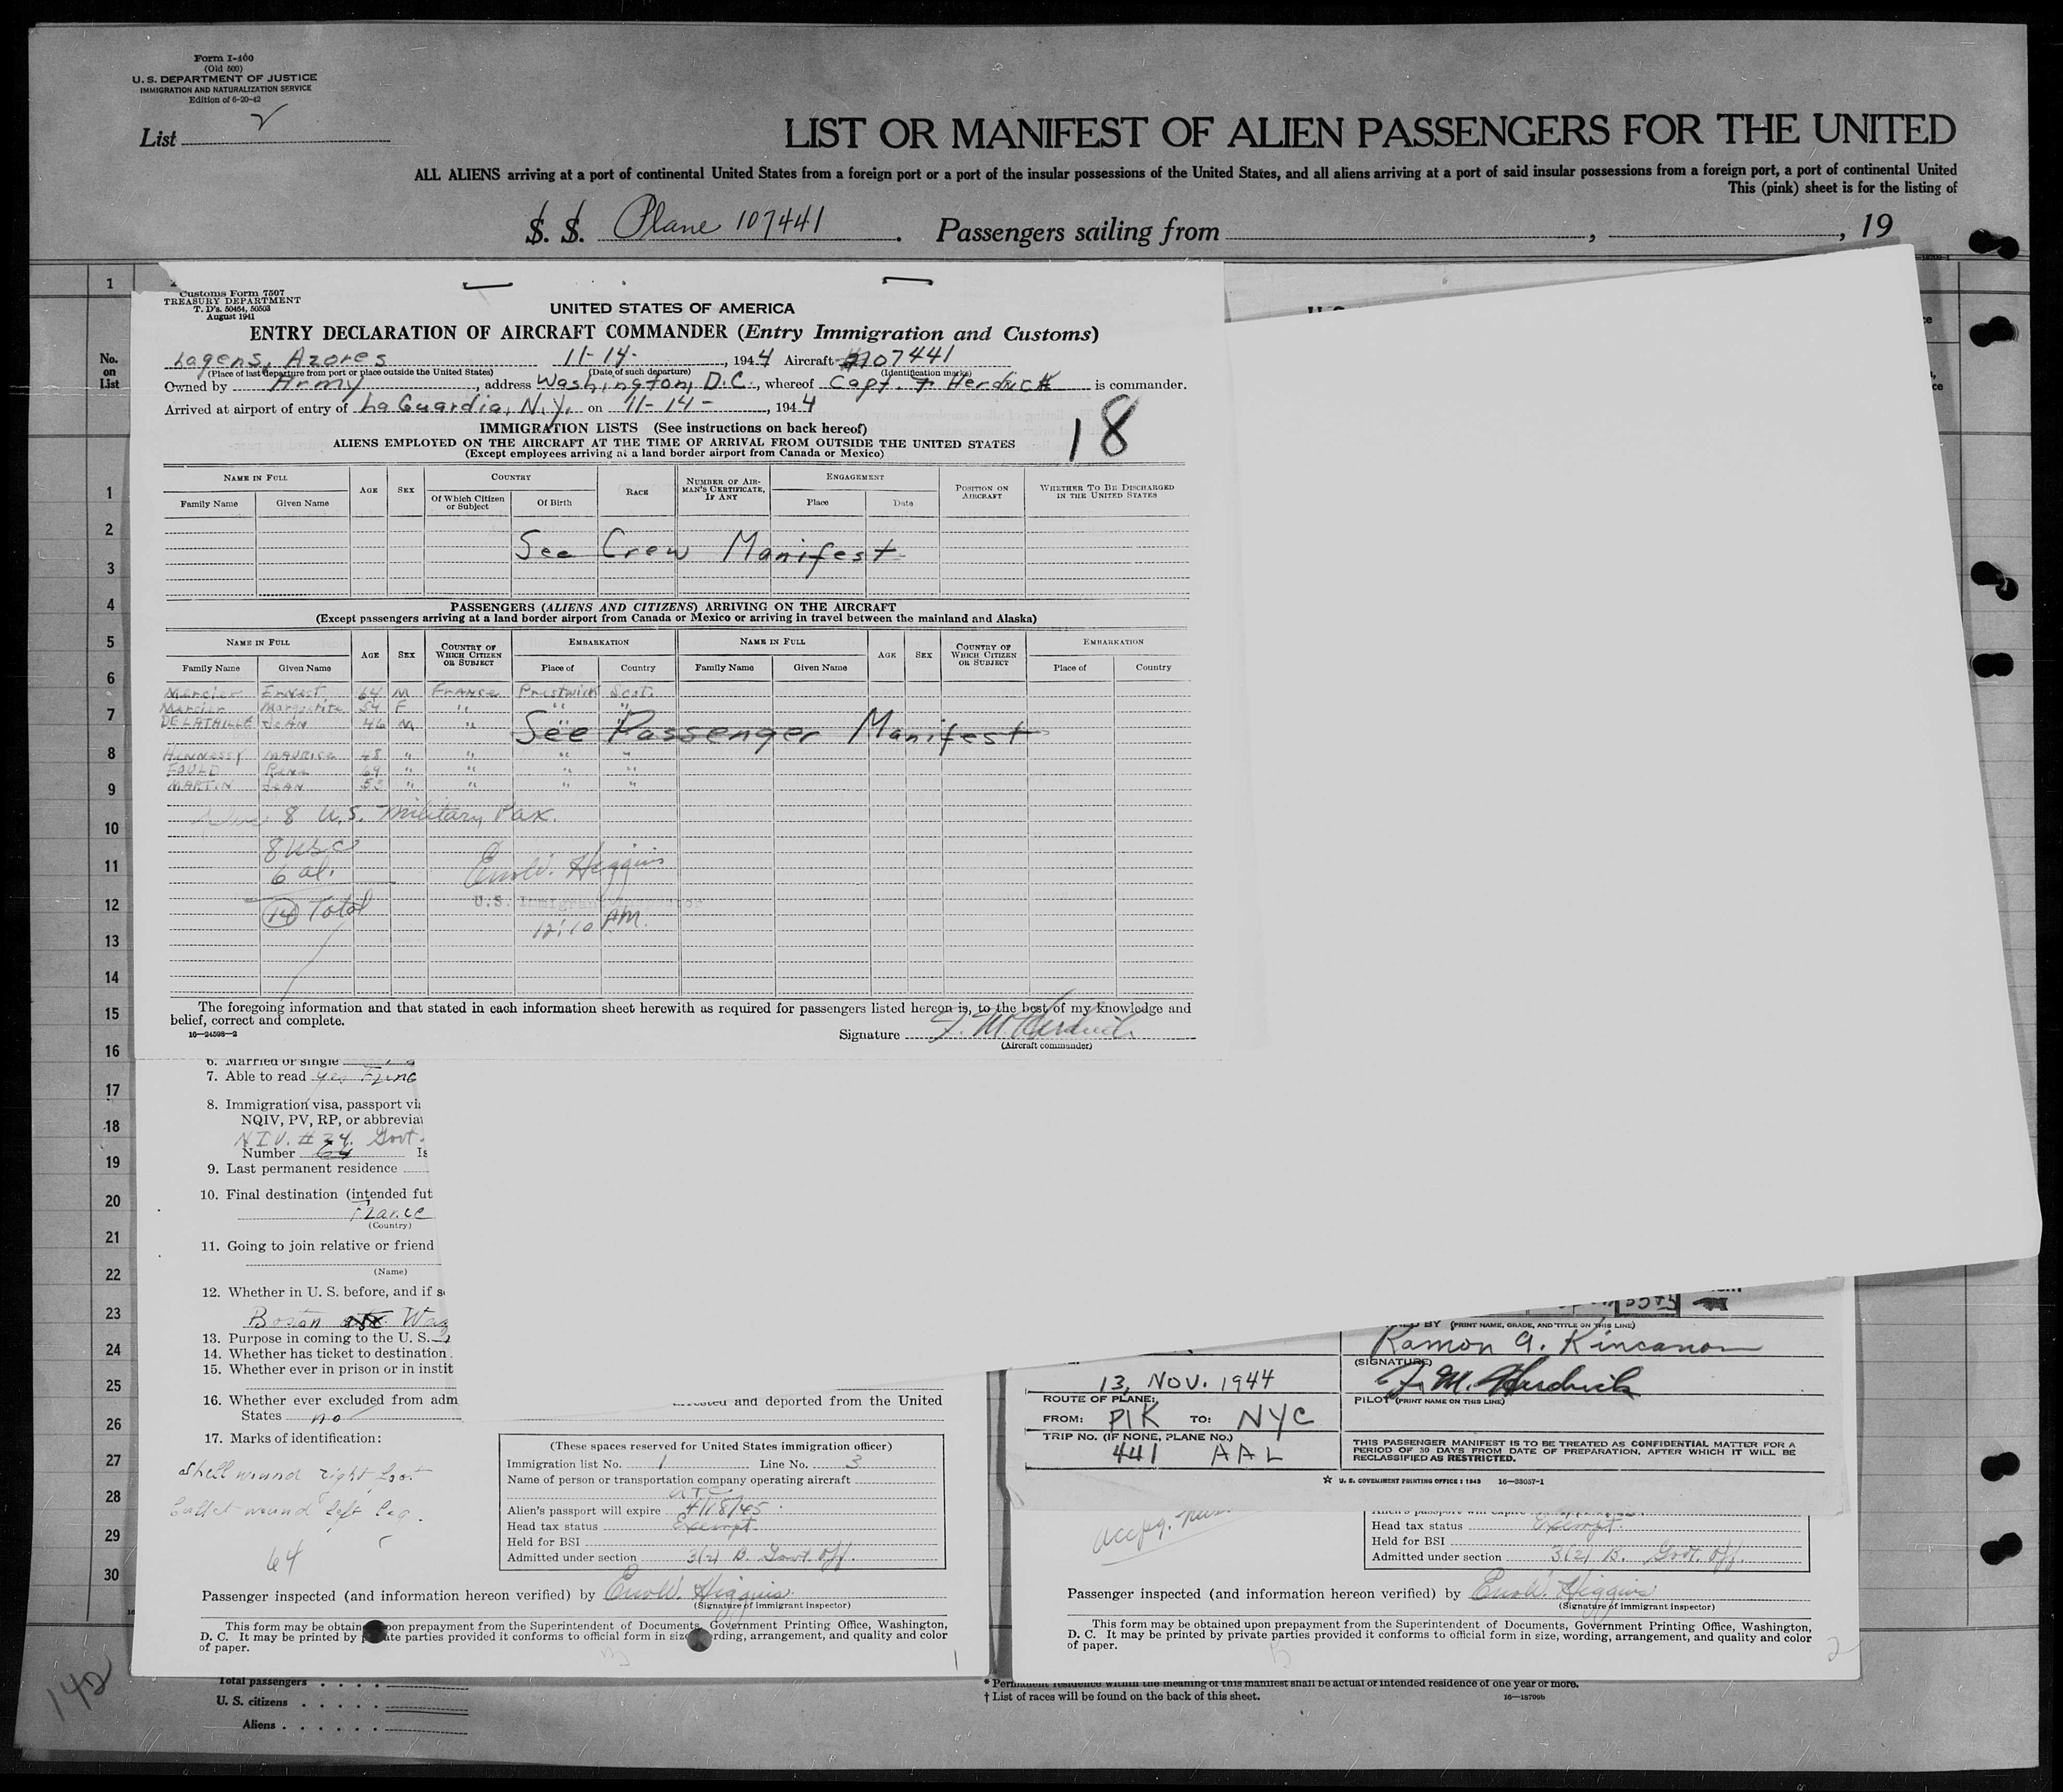 Form I-400
(Old 500)
U. S. DEPARTMENT OF JUSTICE
IMMIGRATION AND NATURALIZATION SERVICE
Edition of 6-20-42
List 2
LIST OR MANIFEST OF ALIEN PASSENGERS FOR THE UNITED
ALL ALIENS arriving at a port of continental United States from a foreign port or a port of the insular possessions of the United States, and all aliens arriving at a port of said insular possessions from a foreign port, a port of continental United
This (pink) sheet is for the listing of
S. S. Plane 107441. Passengers sailing from , , 19
Customs Form 7507
TREASURY DEPARTMENT
T. D's. 50464, 50503
August 1941
UNITED STATES OF AMERICA
ENTRY DECLARATION OF AIRCRAFT COMMANDER (Entry Immigration and Customs)
Lagens, Azores 11-14-, 1944 Aircraft #107441
(Place of last departure from port or place outside the United States) (Date of such departure) (Identification marks)
Owned by Army, address Washington, D.C., whereof Capt. F Herdrick is commander.
Arrived at airport of entry of La Guardia, N.Y. on 11-14-, 1944
18
IMMIGRATION LISTS (See instructions on back hereof)
ALIENS EMPLOYED ON THE AIRCRAFT AT THE TIME OF ARRIVAL FROM OUTSIDE THE UNITED STATES
(Except employees arriving at a land border airport from Canada or Mexico)
NAME IN FULL AGE SEX COUNTRY RACE NUMBER OF AIRMAN'S CERTIFICATE, IF ANY ENGAGEMENT POSITION ON AIRCRAFT WHETHER TO BE DISCHARGED IN THE UNITED STATES
Family Name Given Name Of Which Citizen or Subject Of Birth Place Date
See Crew Manifest
PASSENGERS (ALIENS AND CITIZENS) ARRIVING ON THE AIRCRAFT
(Except passengers arriving at a land border airport from Canada or Mexico or arriving in travel between the mainland and Alaska)
NAME IN FULL AGE SEX COUNTRY OF WHICH CITIZEN OR SUBJECT EMBARKATION NAME IN FULL AGE SEX COUNTRY OF WHICH CITIZEN OR SUBJECT EMBARKATION
Family Name Given Name Place of Country Family Name Given Name Place of Country
Mercier Ernest 64 M France Prestwick Scot.
Mercier Marguerite 54 F " " "
DELATAILLE JEAN 46 M " " "
See Passenger Manifest
HENNESSY MAURICE 48 " " " "
FOULD Rene 69 " " " "
MARTIN JEAN 53 " " " "
8 U.S. Military Pax.
8 USC
6 al.
14 Total
Eno W. Higgins
U.S. Immigrant Inspector
12:10 PM.
The foregoing information and that stated in each information sheet herewith as required for passengers listed hereon is, to the best of my knowledge and
belief, correct and complete.
16—24598-2
Signature F. M. Herdrick
(Aircraft commander)
No.
on
List
1
1
2
3
4
5
6
7
8
9
10
11
12
13
14
15
16
17
18
19
20
21
22
23
24
25
26
27
28
29
30
6. Married or single
7. Able to read yes
8. Immigration visa, passport
NQIV, PV, RP, or
N I V. # 24. Govt.
Number 64
9. Last permanent residence
10. Final destination (intended fut
France
(Country)
11. Going to join relative or friend
(Name)
12. Whether in U. S. before, and if
Boston
13. Purpose in coming to the U. S.
14. Whether has ticket to destination
15. Whether ever in prison or in instit
16. Whether ever excluded from adm
and deported from the United
States no
17. Marks of identification:
Shell wound right foot
bullet wound left leg.
64
(These spaces reserved for United States immigration officer)
Immigration list No. 1 Line No. 3
Name of person or transportation company operating aircraft
ATC
Alien's passport will expire 4/18/45
Head tax status Exempt
Held for BSI
Admitted under section 3(2) B. Govt. Off.
Passenger inspected (and information hereon verified) by Eno W. Higgins
(Signature of immigrant inspector)
This form may be obtained upon prepayment from the Superintendent of Documents, Government Printing Office, Washington,
D. C. It may be printed by private parties provided it conforms to official form in size, wording, arrangement, and quality and color
of paper.
1
(PRINT NAME, GRADE, AND TITLE ON THIS LINE)
Ramon A. Kincanon
(SIGNATURE)
F. M. Herdrick
PILOT (PRINT NAME ON THIS LINE)
13, NOV. 1944
ROUTE OF PLANE:
FROM: PIK TO: NYC
TRIP No. (IF NONE, PLANE NO.)
441 AAL
THIS PASSENGER MANIFEST IS TO BE TREATED AS CONFIDENTIAL MATTER FOR A
PERIOD OF 30 DAYS FROM DATE OF PREPARATION, AFTER WHICH IT WILL BE
RECLASSIFIED AS RESTRICTED.
☆ U. S. GOVERNMENT PRINTING OFFICE : 1943 16—33057-1
Head tax status Exempt
Held for BSI
Admitted under section 3(2) B. Govt. Off.
Passenger inspected (and information hereon verified) by Eno W. Higgins
(Signature of immigrant inspector)
This form may be obtained upon prepayment from the Superintendent of Documents, Government Printing Office, Washington,
D. C. It may be printed by private parties provided it conforms to official form in size, wording, arrangement, and quality and color
of paper.
2
142
Total passengers
U. S. citizens
Aliens
* Permanent residence within the meaning of this manifest shall be actual or intended residence of one year or more.
† List of races will be found on the back of this sheet.
16—18709b